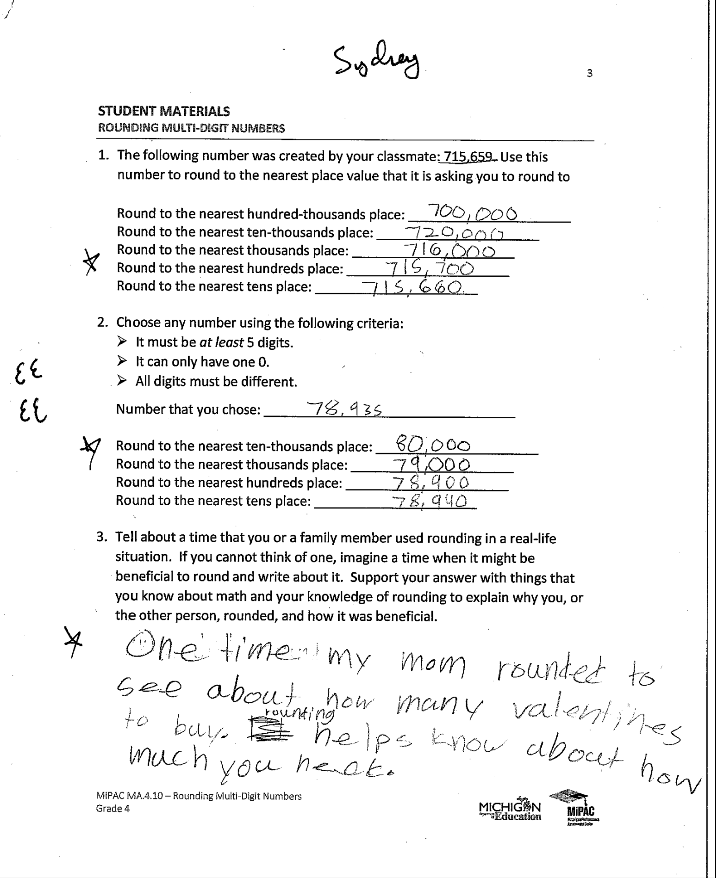 Sydney
3
STUDENT MATERIALS
ROUNDING MULTI-DIGIT NUMBERS
1. The following number was created by your classmate: 715,659. Use this
number to round to the nearest place value that it is asking you to round to
Round to the nearest hundred-thousands place: 700,000
Round to the nearest ten-thousands place: 720,000
Round to the nearest thousands place: 716,000
Round to the nearest hundreds place: 715,700
Round to the nearest tens place: 715,660
2. Choose any number using the following criteria:
➢ It must be at least 5 digits.
➢ It can only have one 0.
➢ All digits must be different.
Number that you chose: 78,935
Round to the nearest ten-thousands place: 80,000
Round to the nearest thousands place: 79,000
Round to the nearest hundreds place: 78,900
Round to the nearest tens place: 78,940
3. Tell about a time that you or a family member used rounding in a real-life
situation. If you cannot think of one, imagine a time when it might be
beneficial to round and write about it. Support your answer with things that
you know about math and your knowledge of rounding to explain why you, or
the other person, rounded, and how it was beneficial.
One time my mom rounded to
see about how many valentines
to buy. rounting helps know about how
much you heat.
MiPAC MA.4.10 – Rounding Multi-Digit Numbers
Grade 4
MICHIGAN
Education
MiPAC